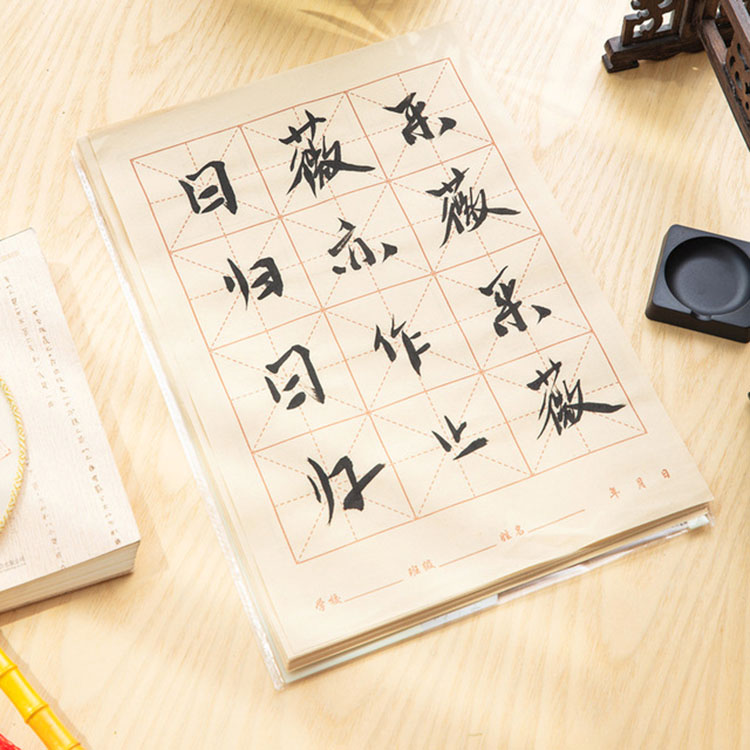 采薇采薇
薇亦作止
曰归曰归
学校______ 班级______ 姓名______ 年 月 日